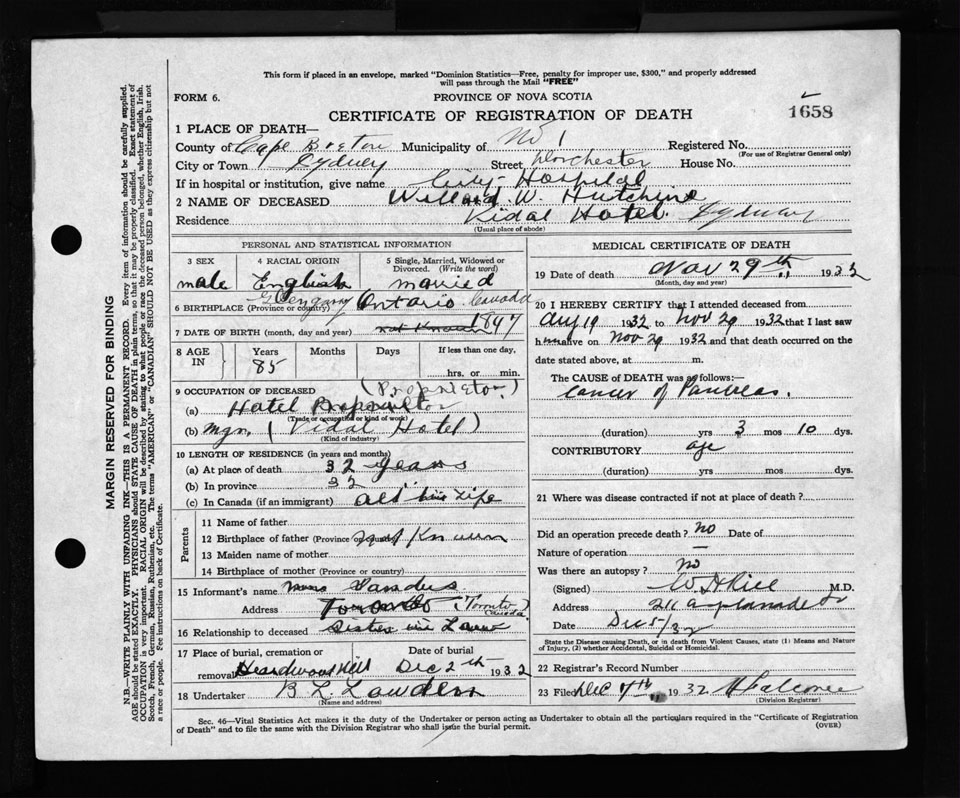 This form if placed in an envelope, marked "Dominion Statistics—Free, penalty for improper use, $300," and properly addressed
will pass through the Mail "FREE"
FORM 6.
PROVINCE OF NOVA SCOTIA
CERTIFICATE OF REGISTRATION OF DEATH
1658
1 PLACE OF DEATH—
County of Cape Breton Municipality of No 1 Registered No.
(For use of Registrar General only)
City or Town Sydney Street Dorchester House No.
If in hospital or institution, give name City Hospital
2 NAME OF DECEASED Willard W. Hutchins
Residence Vidal Hotel. Sydney
(Usual place of abode)
PERSONAL AND STATISTICAL INFORMATION
3 SEX
male
4 RACIAL ORIGIN
English
5 Single, Married, Widowed or
Divorced. (Write the word)
married
6 BIRTHPLACE (Province or country) Glengarry Ontario Canada
7 DATE OF BIRTH (month, day and year) not Known 1847
8 AGE IN
Years Months Days If less than one day,
85 hrs. or min.
9 OCCUPATION OF DECEASED (Proprietor.)
(a) Hotel Proprietor
(Trade or occupation or kind of work)
(b) mgr. (Vidal Hotel)
(Kind of industry)
10 LENGTH OF RESIDENCE (in years and months)
(a) At place of death 32 years
(b) In province 32
(c) In Canada (if an immigrant) all his life
Parents
11 Name of father
12 Birthplace of father (Province or country) not Known
13 Maiden name of mother
14 Birthplace of mother (Province or country)
15 Informant's name Mrs
Address Toronto (Toronto Canada)
16 Relationship to deceased Sister in Law
17 Place of burial, cremation or
removal Heardwood Hill
Date of burial
Dec 2th 1932
18 Undertaker B L. Lowden
(Name and address)
MEDICAL CERTIFICATE OF DEATH
19 Date of death Nov 29th 1932
(Month, day and year)
20 I HEREBY CERTIFY that I attended deceased from
Aug 19 1932 to Nov 29 1932 that I last saw
him alive on Nov 29 1932 and that death occurred on the
date stated above, at m.
The CAUSE of DEATH was as follows:—
Cancer of Pancreas.
(duration) yrs 3 mos 10 dys.
CONTRIBUTORY age
(duration) yrs. mos. dys.
21 Where was disease contracted if not at place of death?
Did an operation precede death? no Date of
Nature of operation —
Was there an autopsy? no
(Signed) M.D.
Address 211 Esplanade
Date Dec 5/32
State the Disease causing Death, or in death from Violent Causes, state (1) Means and Nature
of Injury, (2) whether Accidental, Suicidal or Homicidal.
22 Registrar's Record Number
23 Filed Dec 7th 1932
(Division Registrar)
Sec. 46—Vital Statistics Act makes it the duty of the Undertaker or person acting as Undertaker to obtain all the particulars required in the "Certificate of Registration
of Death" and to file the same with the Division Registrar who shall issue the burial permit.
(OVER)
MARGIN RESERVED FOR BINDING
N.B.—WRITE PLAINLY WITH UNFADING INK—THIS IS A PERMANENT RECORD. Every item of information should be carefully supplied.
AGE should be stated EXACTLY. PHYSICIANS should STATE CAUSE OF DEATH in plain terms, so that it may be properly classified. Exact statement of
OCCUPATION is very important. RACIAL ORIGIN will be described by stating to what people or race the deceased person belonged, whether English, Irish,
Scotch, French, German, Russian, Ruthenian, etc. The terms "AMERICAN" or "CANADIAN" SHOULD NOT BE USED as they express citizenship but not
a race or people. Fee instructions on back of Certificate.